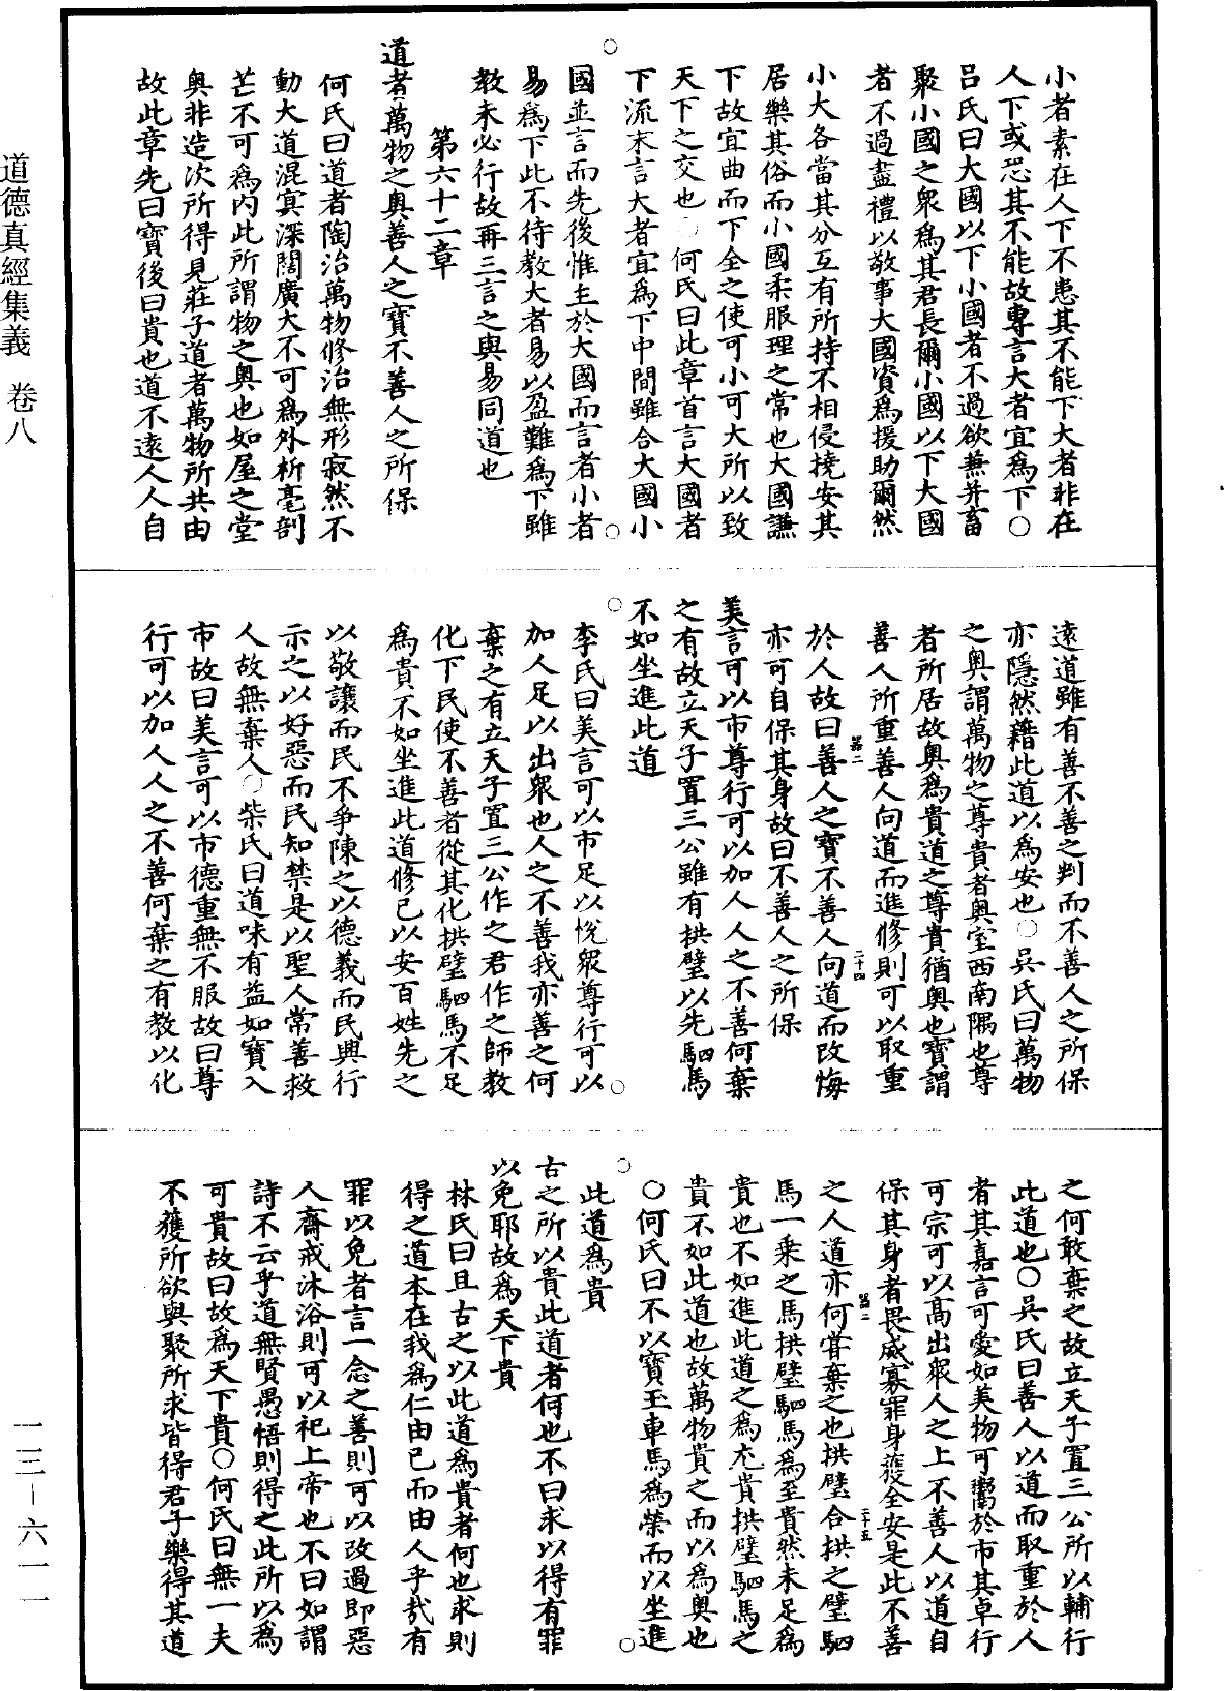 小者素在人下不患其不能下大者非在
人下或恐其不能故專言大者宜為下○
呂氏曰大國以下小國者不過欲兼并畜
聚小國之衆為其君長爾小國以下大國
者不過盡禮以敬事大國資為援助爾然
小大各當其分互有所持不相侵撓安其
居樂其俗而小國柔服理之常也大國謙
下故宜曲而下全之使可小可大所以致
天下之交也○何氏曰此章首言大國者
下流末言大者宜為下中間雖合大國小
國並言而先後惟主於大國而言者小者
易為下此不待教大者易以盈難為下雖
教未必行故再三言之與易同道也
第六十二章
道者萬物之奥善人之寶不善人之所保
何氏曰道者陶冶萬物修治無形寂然不
動大道混冥深闊廣大不可為外析毫剖
芒不可為内此所謂物之奥也如屋之堂
奥非造次所得見莊子道者萬物所共由
故此章先曰寶後曰貴也道不遠人人自
遠道雖有善不善之判而不善人之所保
亦隱然藉此道以為安也○吳氏曰萬物
之奥謂萬物之尊貴者奥室西南隅也尊
者所居故奥為貴道之尊貴猶奥也寶謂
善人所重善人向道而進修則可以取重
於人故曰善人之寶不善人向道而改悔
亦可自保其身故曰不善人之所保
美言可以市尊行可以加人人之不善何棄
之有故立天子置三公雖有拱璧以先駟馬
不如坐進此道
李氏曰美言可以市足以悅衆尊行可以
加人足以出衆也人之不善我亦善之何
棄之有立天子置三公作之君作之師教
化下民使不善者從其化拱璧駟馬不足
為貴不如坐進此道修己以安百姓先之
以敬讓而民不爭陳之以德義而民興行
示之以好惡而民知禁是以聖人常善救
人故無棄人○柴氏曰道味有益如寶入
市故曰美言可以市德重無不服故曰尊
行可以加人人之不善何棄之有教以化
之何敢棄之故立天子置三公所以輔行
此道也○吳氏曰善人以道而取重於人
者其嘉言可愛如美物可鬻於市其卓行
可宗可以高出衆人之上不善人以道自
保其身者畏威寡罪身獲全安是此不善
之人道亦何嘗棄之也拱璧合拱之璧駟
馬一乘之馬拱璧駟馬為至貴然未足為
貴也不如進此道之為尤貴拱璧駟馬之
貴不如此道也故萬物貴之而以為奥也
○何氏曰不以寶玉車馬為榮而以坐進
此道為貴
古之所以貴此道者何也不曰求以得有罪
以免耶故為天下貴
林氏曰且古之以此道為貴者何也求則
得之道本在我為仁由己而由人乎哉有
罪以免者言一念之善則可以改過即惡
人齋戒沐浴則可以祀上帝也不曰如謂
詩不云乎道無賢愚悟則得之此所以為
可貴故曰故為天下貴○何氏曰無一夫
不獲所欲與聚所求皆得君子樂得其道
器二
二十四
器二
二十五
道德真經集義 卷八
一三—六一一